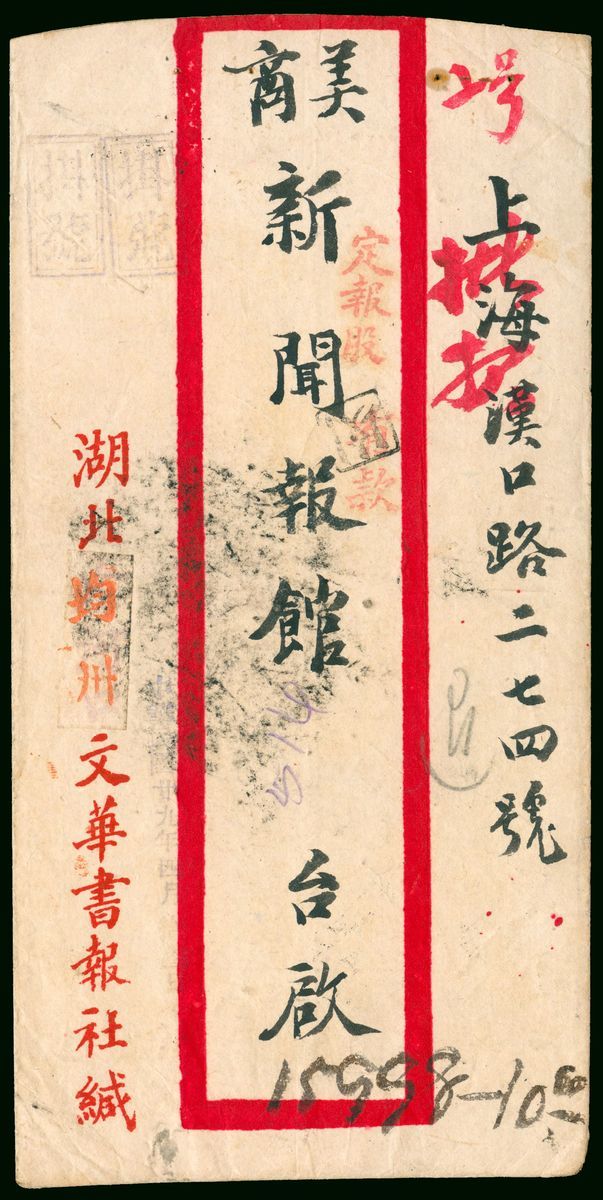 上海漢口路二七四號
掛號
美商
新聞報館 台啟
定報股
款
15998-10
湖北均州文華書報社緘
廿九年四月
掛號
掛號